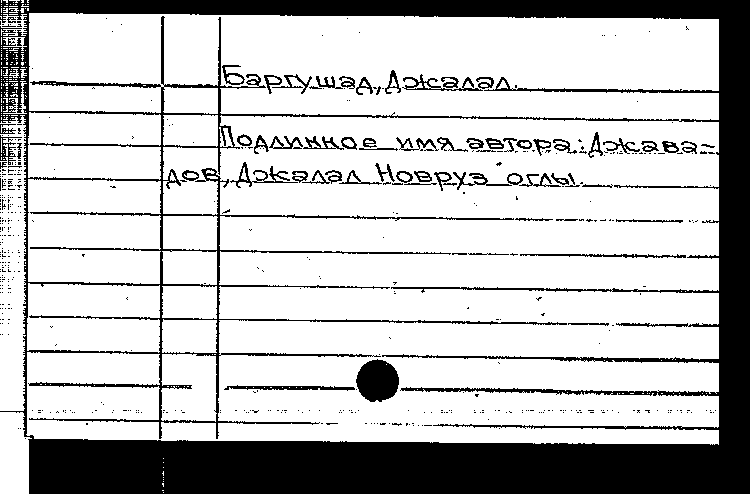 Баргушад, Джалал.
Подлинное имя автора: Джава-
дов, Джалал Новруз оглы.